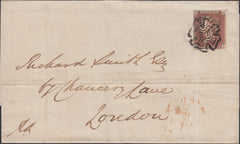 Richard Smith Esq
67 Chancery Lane
London